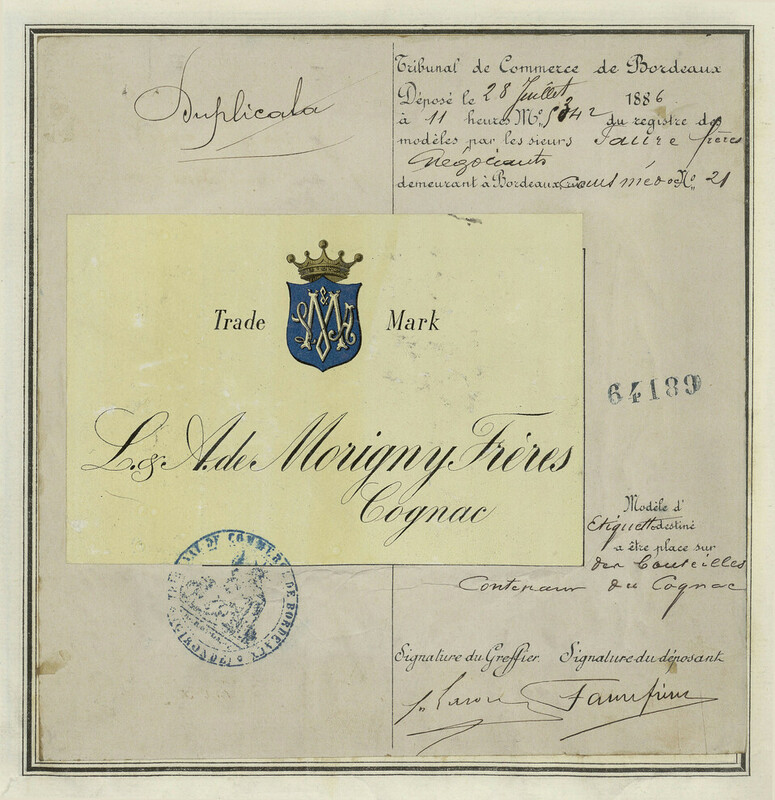 Duplicata
Tribunal de Commerce de Bordeaux
Déposé le 28 Juillet 1886
à 11 heures No. 5342 du registre des
modèles par les sieurs Faure frères
Négociants
demeurant à Bordeaux, cours médoc No. 21
Trade Mark
L. & A. de Morigny Frères
Cognac
64189
Modèle d'
Etiquette destiné
a être place sur
des bouteilles
Contenant du Cognac
TRIBUNAL DE COMMERCE DE BORDEAUX
Signature du Greffier Signature du déposant
Faure frères